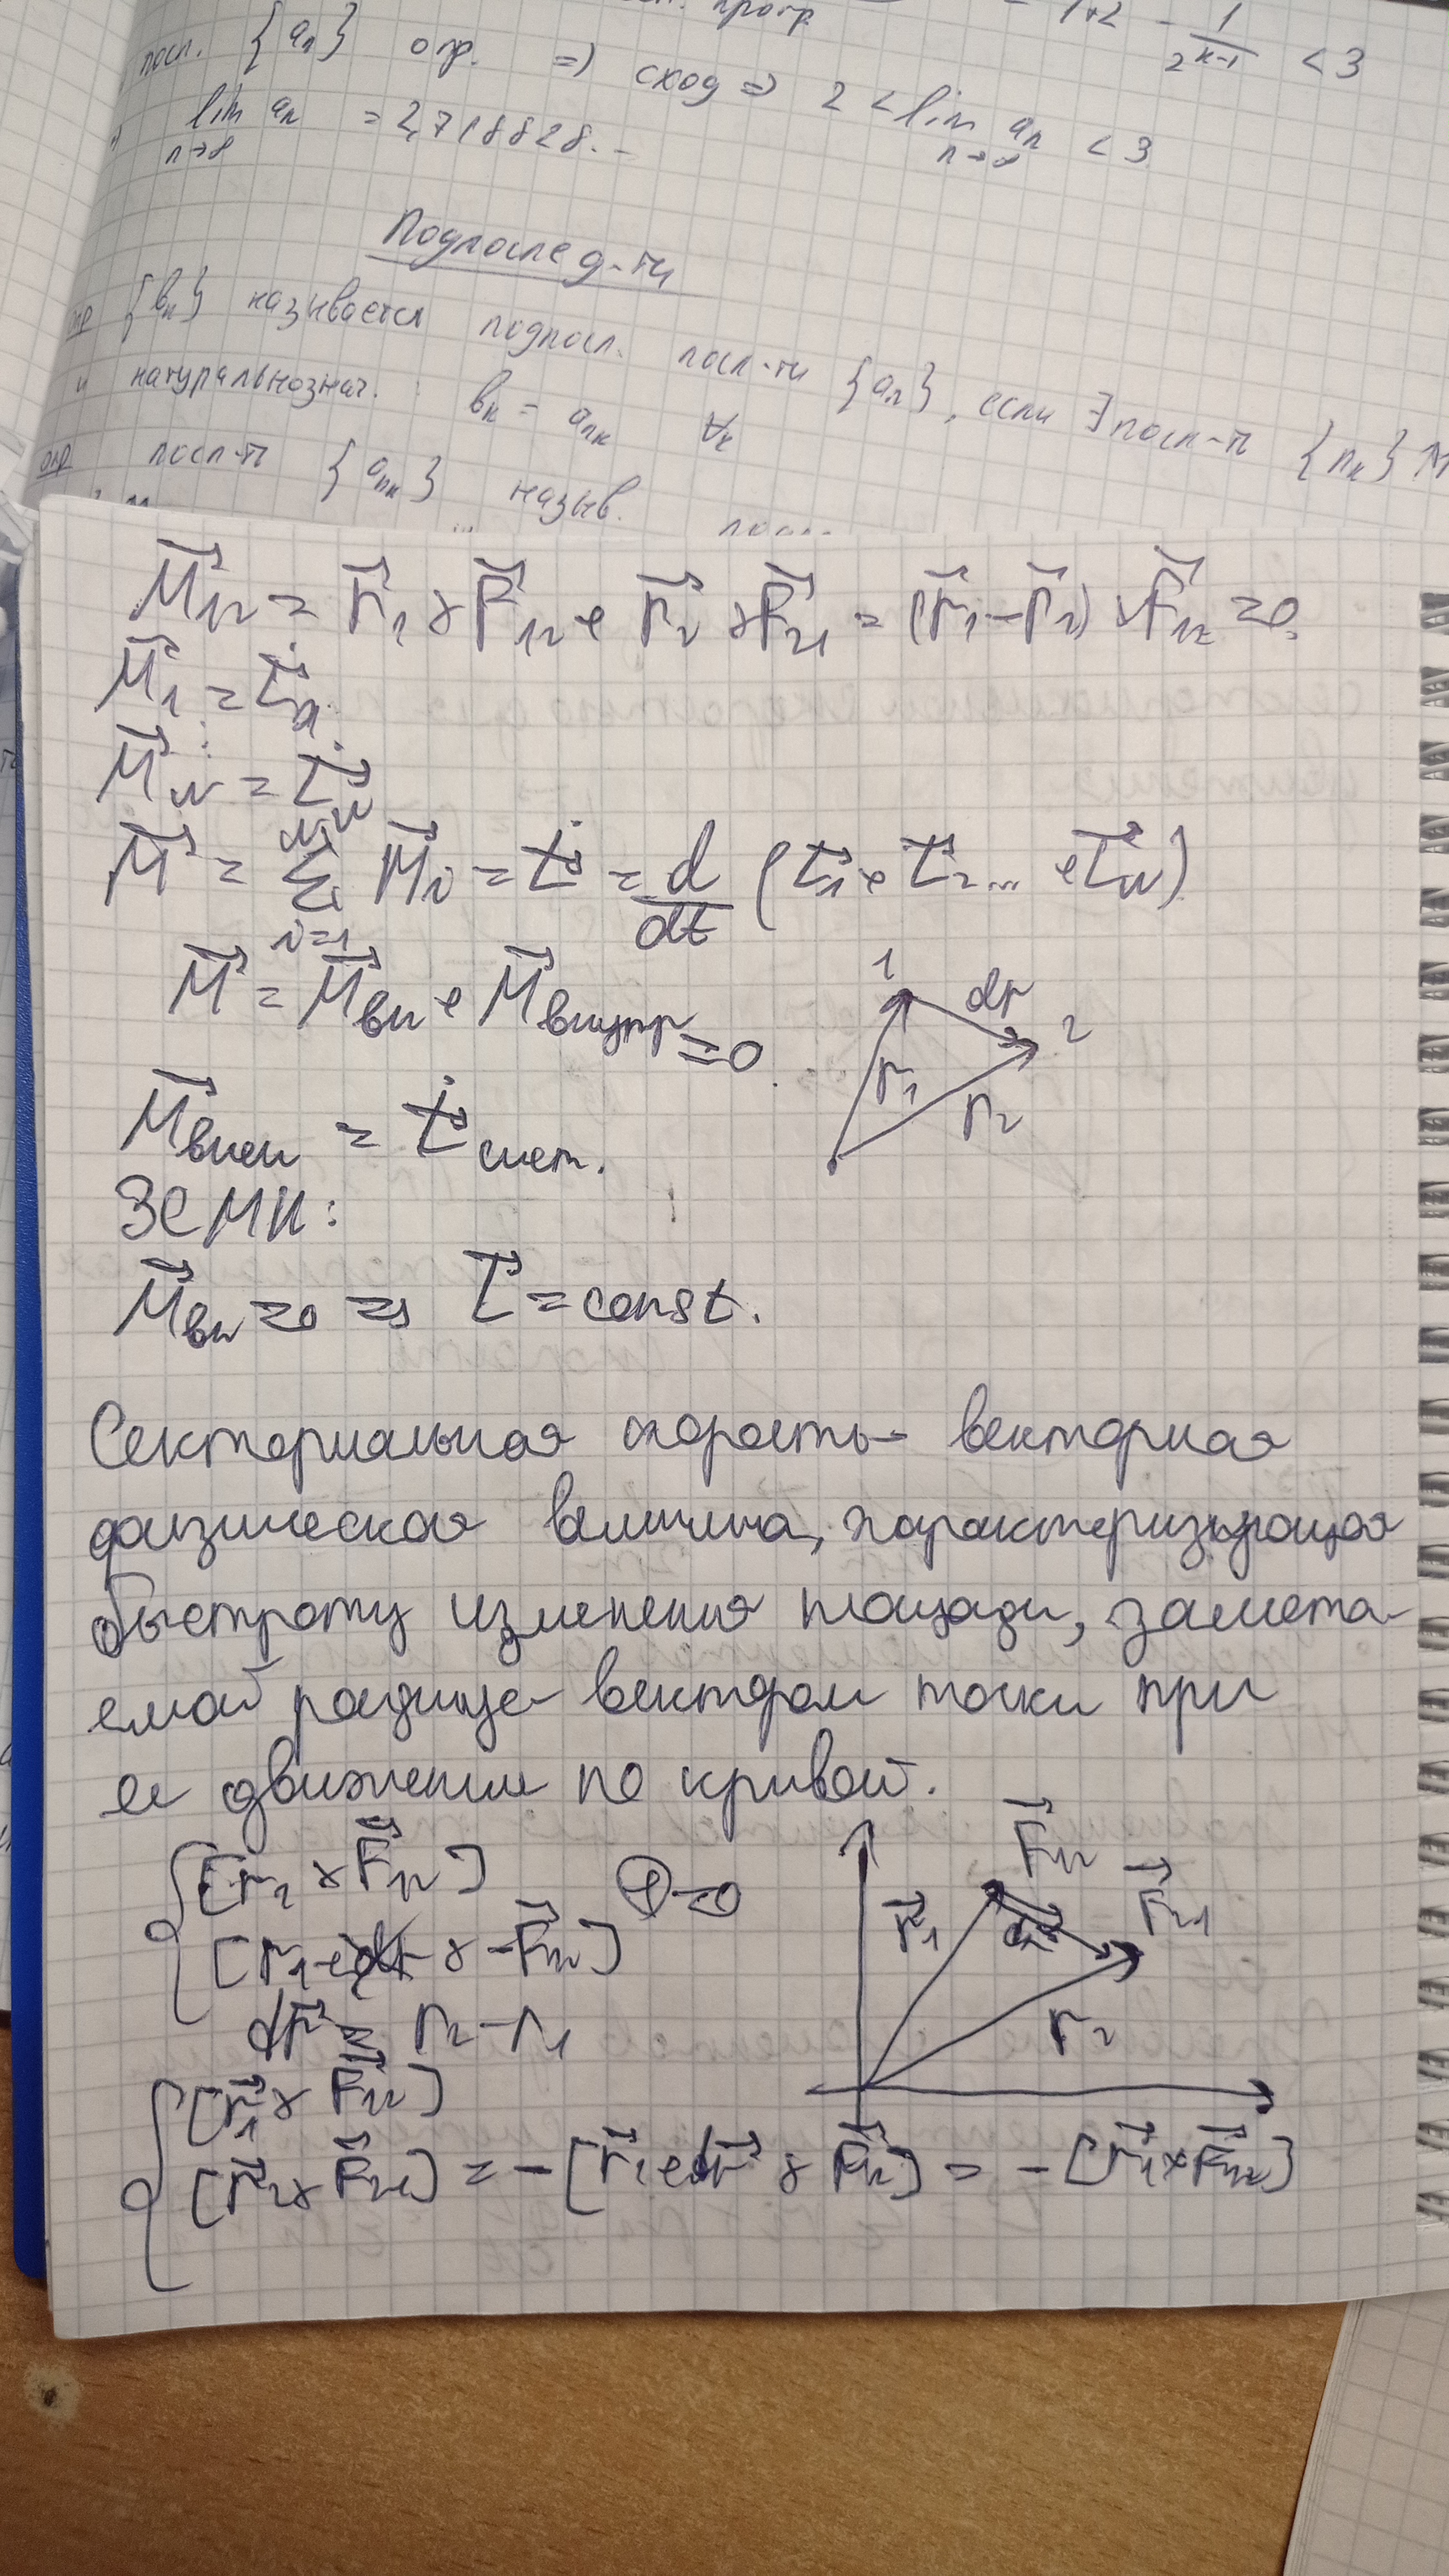 прогр. = 1+2 - 1/2^(k-1) < 3
посл. {aₙ} огр. => сход => 2 < lim aₙ < 3
n→∞
lim aₙ = 2,718828...
n→∞
Подпослед-ти
опр {bₖ} называется подпосл. посл-ти {aₙ}, если ∃ посл-ть {nₖ}
и натуральнознач. : bₖ = aₙₖ ∀k
опр посл-ть {aₙₖ} назыв.
M⃗₁₂ = r⃗₁ × F⃗₁₂ + r⃗₂ × F⃗₂₁ = (r⃗₁ - r⃗₂) × F⃗₁₂ = 0.
M⃗₁ = L⃗̇₁
⋮
M⃗_N = L⃗̇_N
M⃗ = Σ_{i=1}^{N} M⃗ᵢ = L⃗̇ = d/dt (L⃗₁ + L⃗₂ ... + L⃗_N)
M⃗ = M⃗вн + M⃗внутр = 0
1 dr 2
r₁ r₂
M⃗внеш = L⃗̇ сист.
ЗСМИ:
M⃗вн = 0 => L⃗ = const.
Секториальная скорость - векторная
физическая величина, характеризующая
быстроту изменения площади, замета-
емой радиус-вектором точки при
ее движении по кривой.
{ [r₁ × F⃗₁₂]
[r₁ + dr × -F⃗₁₂] ⊕ = 0
dr⃗ = r₂ - r₁
F⃗₁₂ F⃗₂₁
r⃗₁ dr r₂
{ [r⃗₁ × F⃗₁₂]
[r⃗₂ × F⃗₂₁] = -[r⃗₁ + dr⃗ × F⃗₁₂] = -[r⃗₁ × F⃗₁₂]